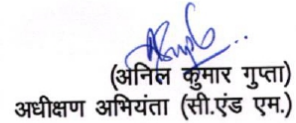 (अनिल कुमार गुप्ता)
अधीक्षण अभियंता (सी.एंड एम.)